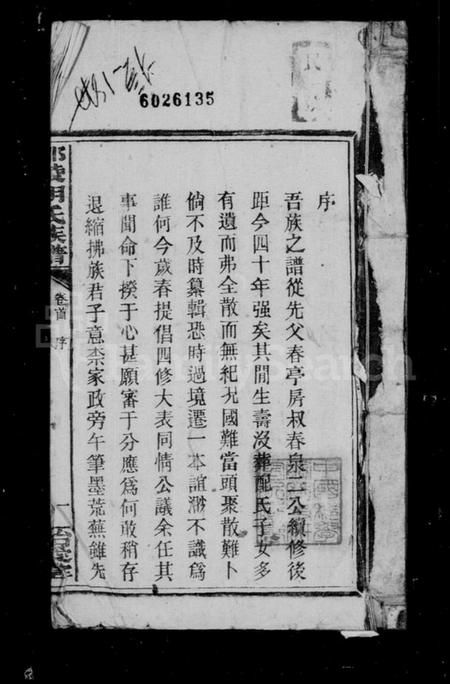 6026135
序
吾族之譜從先父春亭房叔春泉二公續修後
距今四十年强矣其間生壽沒葬配氏子女多
有遺而弗全散而無紀況國難當頭聚散難卜
倘不及時纂輯恐時過境遷一本誼渺不識為
誰何今歲春提倡四修大衺同情公議余任其
事聞命下揆于心甚願審于分應為何敢稍存
退縮拂族君子意柰家政旁午筆墨荒蕪雖先
胡氏族譜
卷首 序
一